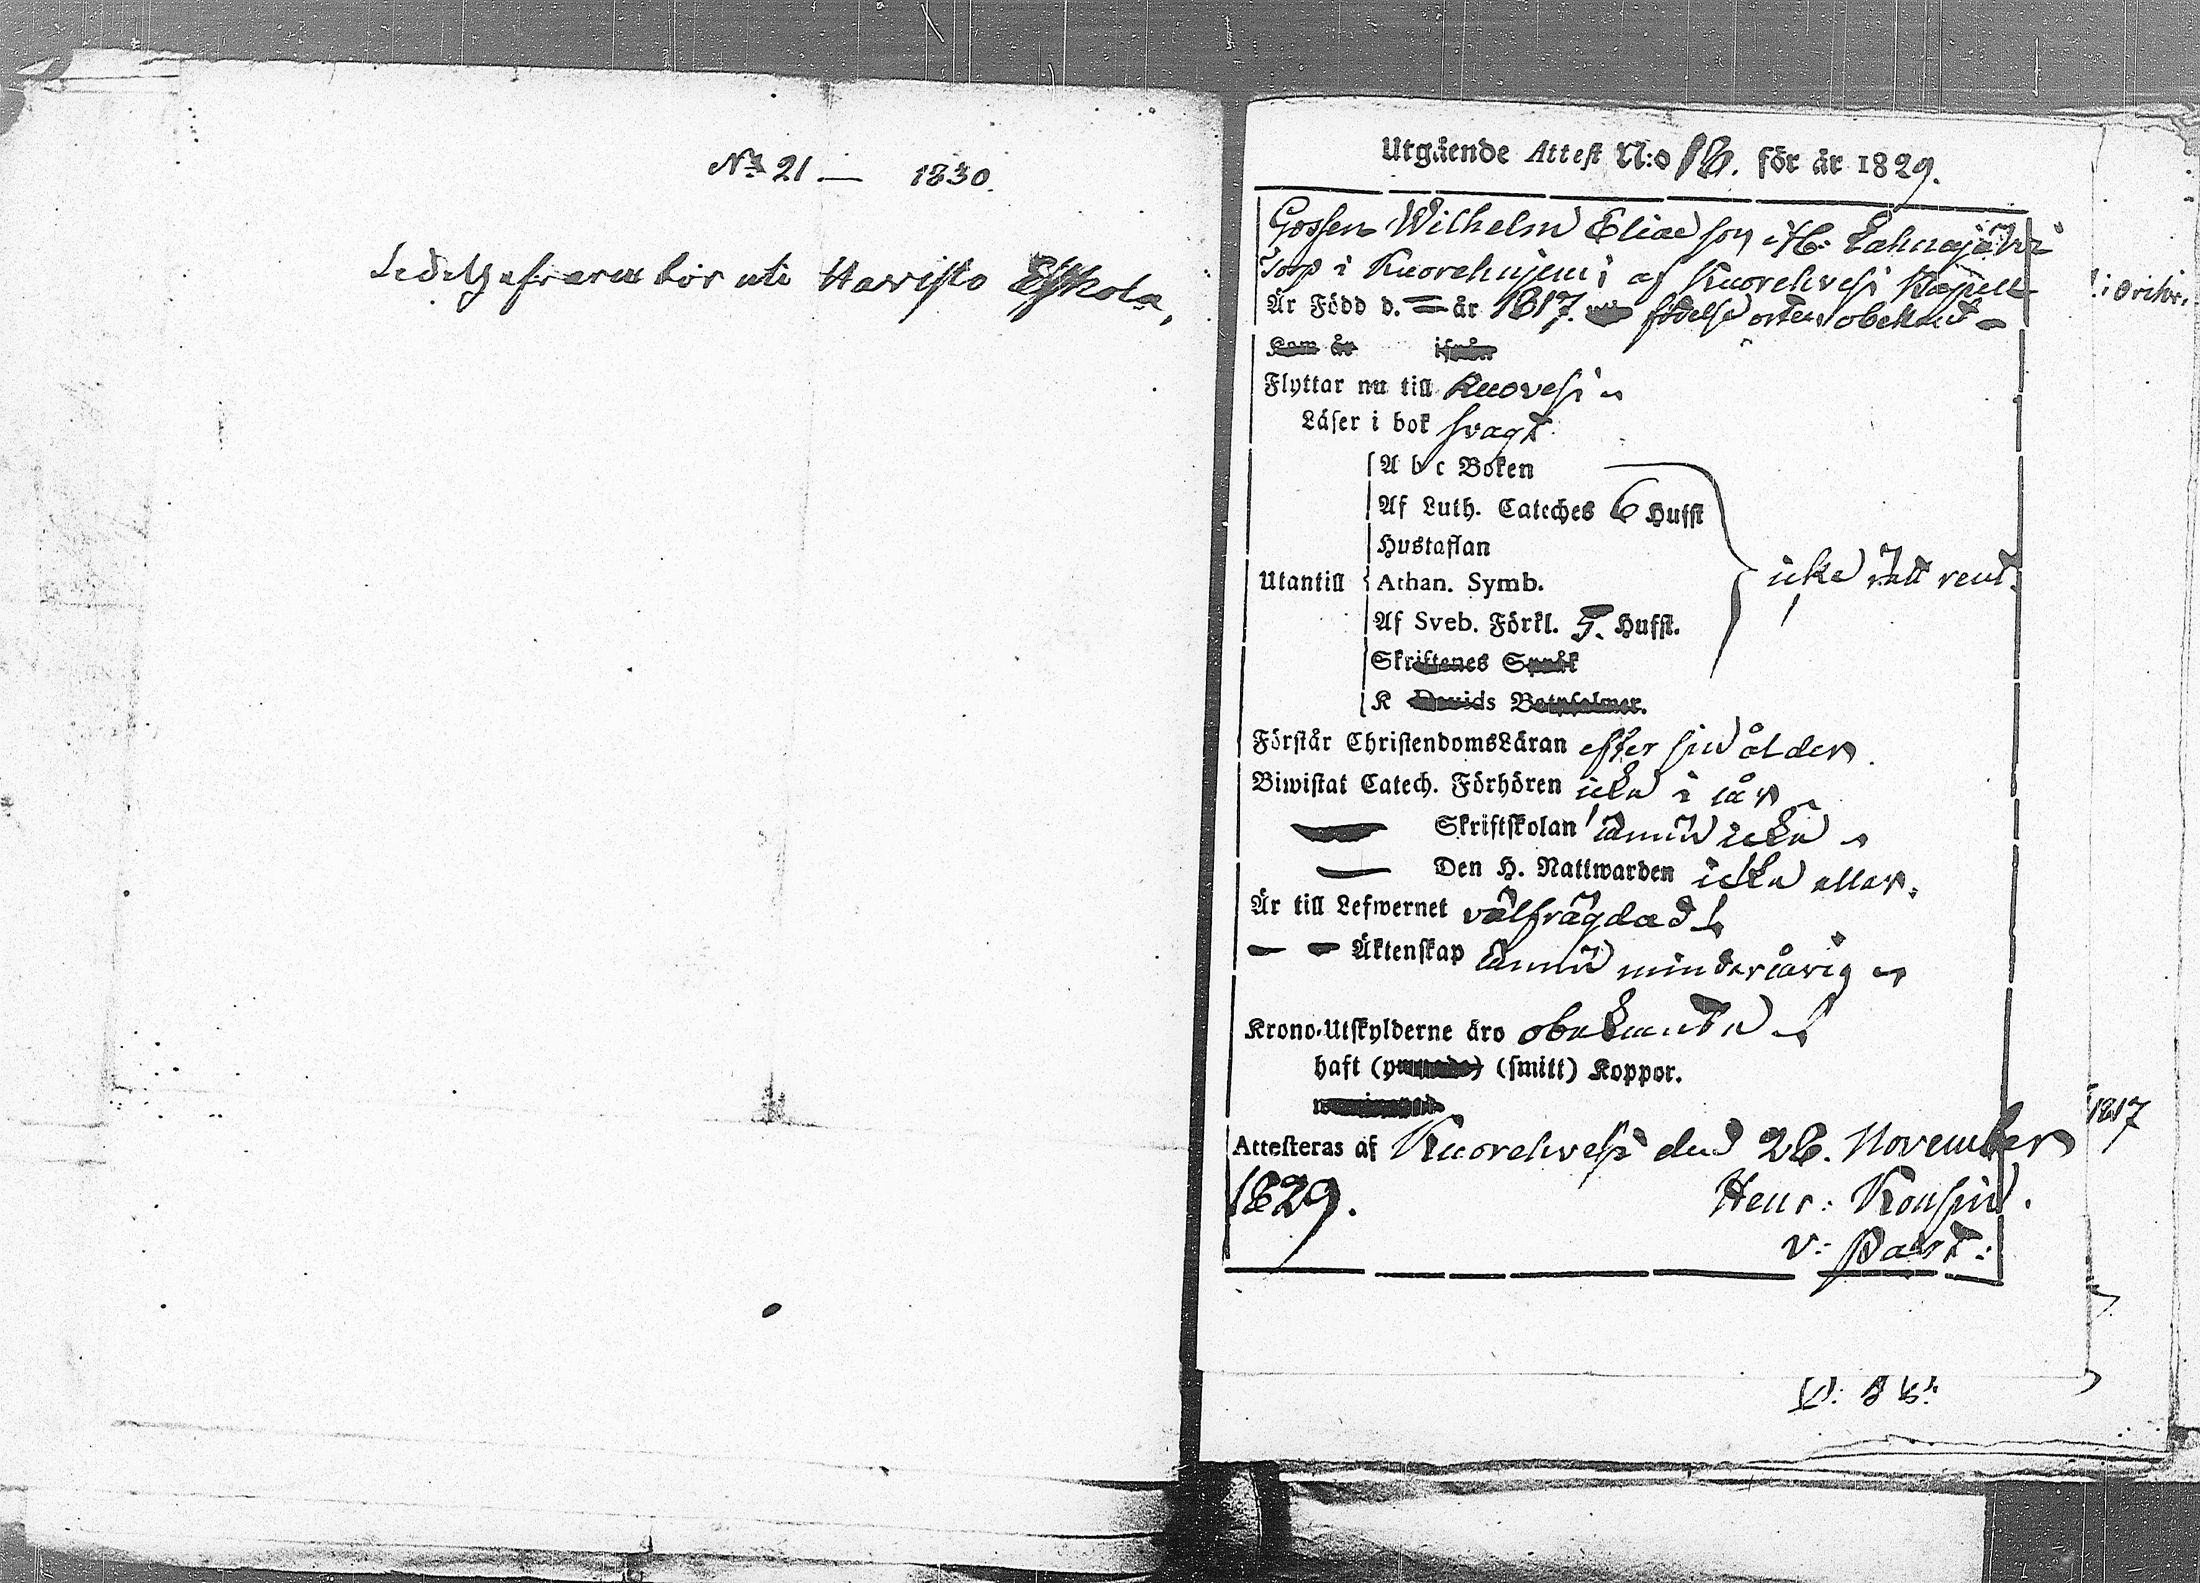 No 21 — 1830.
bor uti Havisto Eskola,
Utgående Attest N:o 16. för år 1829.
Gossen Wilhelm Elias son
Torp i af Kuorehvesi Kapell
Är Född d. = år 1817. födelse orten obekand
Kom år ifrån
Flyttar nu till Ruovesi
Läser i bok svagt
A b c Boken
Af Luth. Cateches 6 Hufst
Hustaflan
Utantill Athan. Symb. icke rätt rent.
Af Sveb. Förkl. 5. Hufst.
Skriftenes Språk
K Davids Botpsalmer.
Förstår ChristendomsLäran efter sin ålder.
Biwistat Catech. Förhören icke i år
— Skriftskolan ännu icke
— Den H. Nattwarden icke eller.
Är till Lefwernet välfrägdad
— — Äktenskap ännu minderårig
Krono-Utskylderne äro obekante
haft (ymnade) (smitt) Koppor.
Attesteras af Kuorehvesi den 26. November
1829. Henr: Konsin.
v: Past:
1817